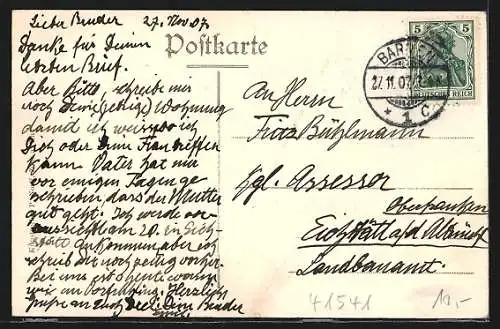 Lieber Bruder 27. Nov 07.
Danke für Deinen
lieben Brief.
Aber Bitte, schreibe mir
noch Deine (jetzige) Wohnung
damit ich weiss wo ich
Dich oder Deine Frau treffen
kann. Vater hat mir
vor einigen Tagen ge
schrieben dass der Mutter
gut geht. Ich werde vor
aussichtl am 20. in Eich
stätt ankommen aber ich
schreib dir noch zeitig vorher.
Bei uns ist heute warm
wie am Herzlich
Dein Bruder
Postkarte
5 5
DEUTSCHES REICH
BARMEN
27.11.07
* 1 C
An Herrn
Fritz Bühlmann
Kgl. Assessor
Oberfranken
Eichstätt a/d Altmühl
Landbauamt
41541
10,-